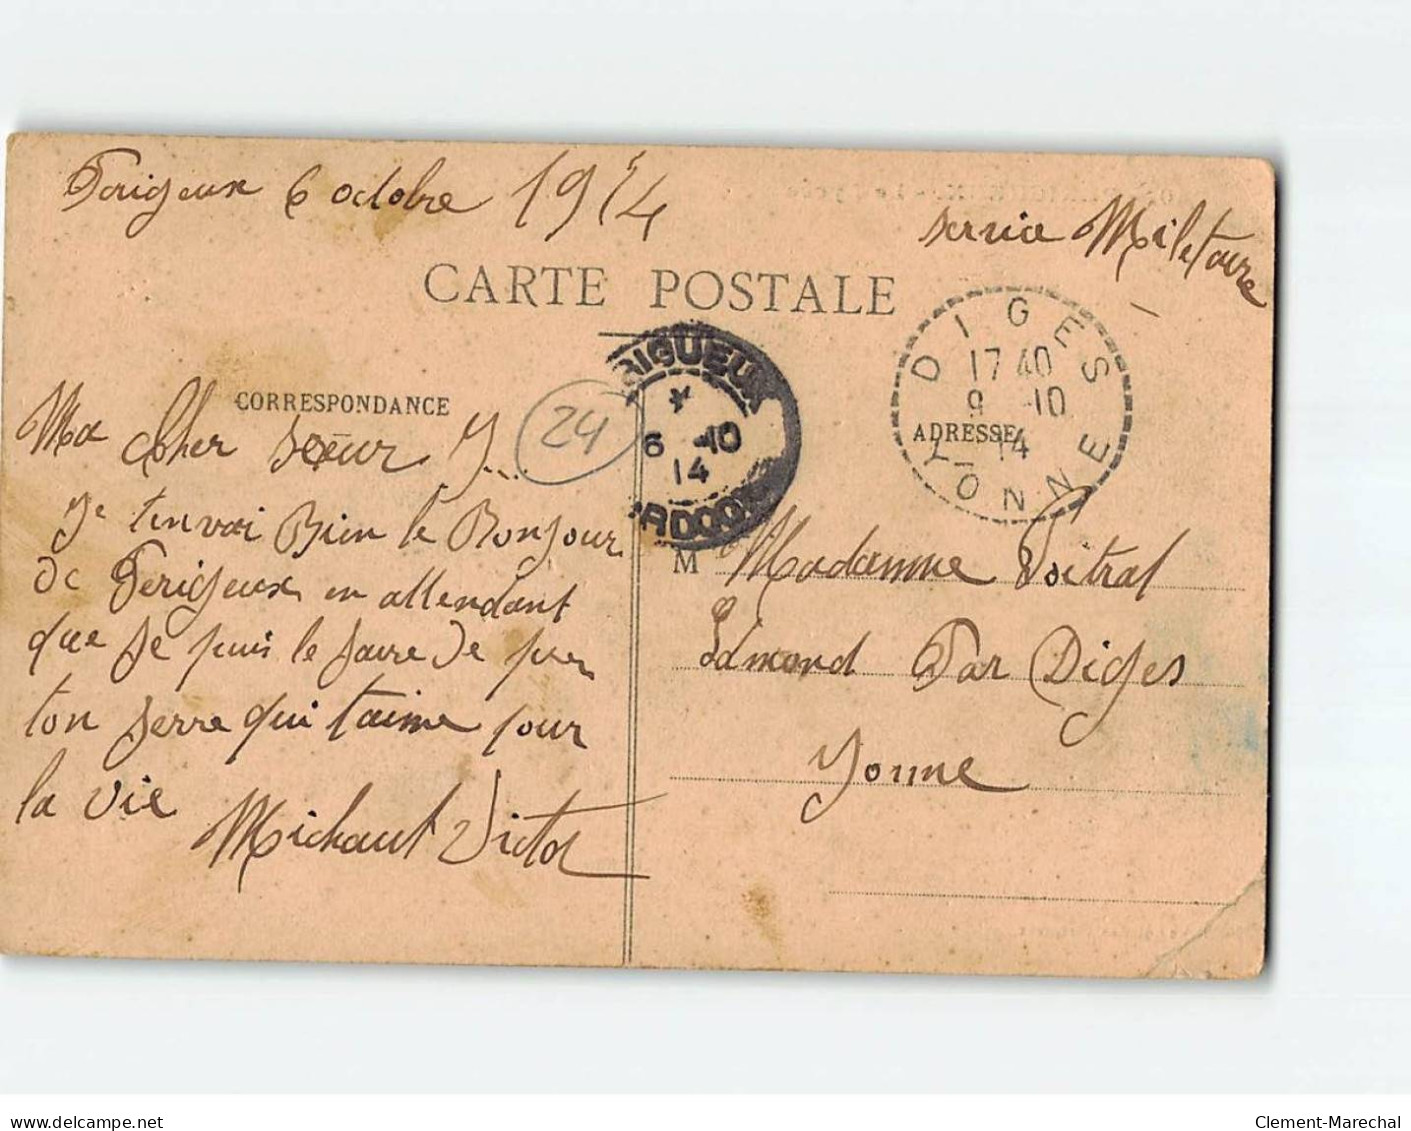 Perigeux 6 octobre 1914
Service Miletaire
CARTE POSTALE
CORRESPONDANCE
ADRESSE
24
PERIGUEUX
6 -10
14
DORDOGNE
DIGES
17 40
9 -10
14
YONNE
Ma Cher Sœur Y...
Je tenvoi Bien le Bonjour
de Perigeux en attendant
que je puis le faire de pres
ton frere qui taime pour
la vie
Michaut Victor
M Madamme Voitral
Edmond Par Diges
Yonne
www.delcampe.net
Clement-Marechal